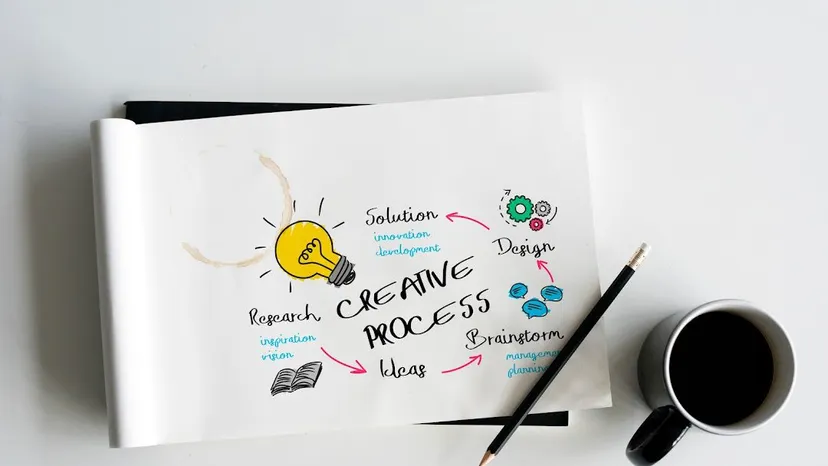 Solution
innovation
development
Design
CREATIVE
PROCESS
Research
inspiration
vision
Ideas
Brainstorm
management
planning